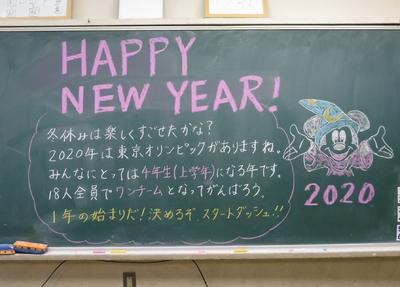 HAPPY
NEW YEAR!
冬休みは楽しくすごせたかな？
2020年は東京オリンピックがありますね。
みんなにとっては4年生(上学年)になる年です。
18人全員でワンチームとなってがんばろう。
1年の始まりだ！決めろぞ、スタートダッシュ!!
2020